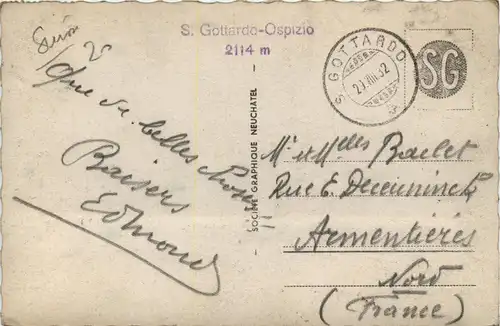 S. Gottardo-Ospizio
2114 m
S. GOTTARDO
20.VIII.32
SG
Que de belles choses
Baisers
Edmond
SOCIÉTÉ GRAPHIQUE NEUCHATEL
Mr et Melles Baclet
Rue E. Deceuninck
Armentières
Nord
(France)